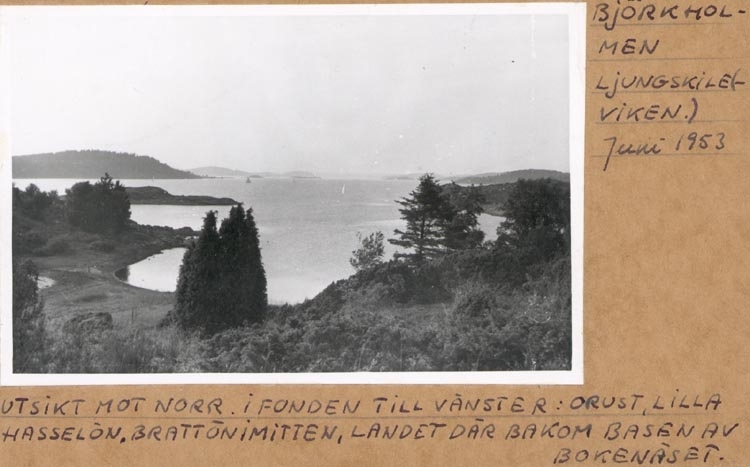 BJÖRKHOL-
MEN
LJUNGSKILE(-
VIKEN.)
Juni 1953
UTSIKT MOT NORR. I FONDEN TILL VÄNSTER: ORUST, LILLA
HASSELÖN, BRATTÖN I MITTEN, LANDET DÄR BAKOM BASEN AV
BOKENÄSET.